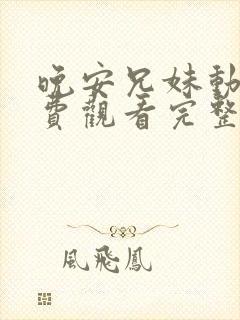 晚安兄妹動
費觀看完整
風飛鳳